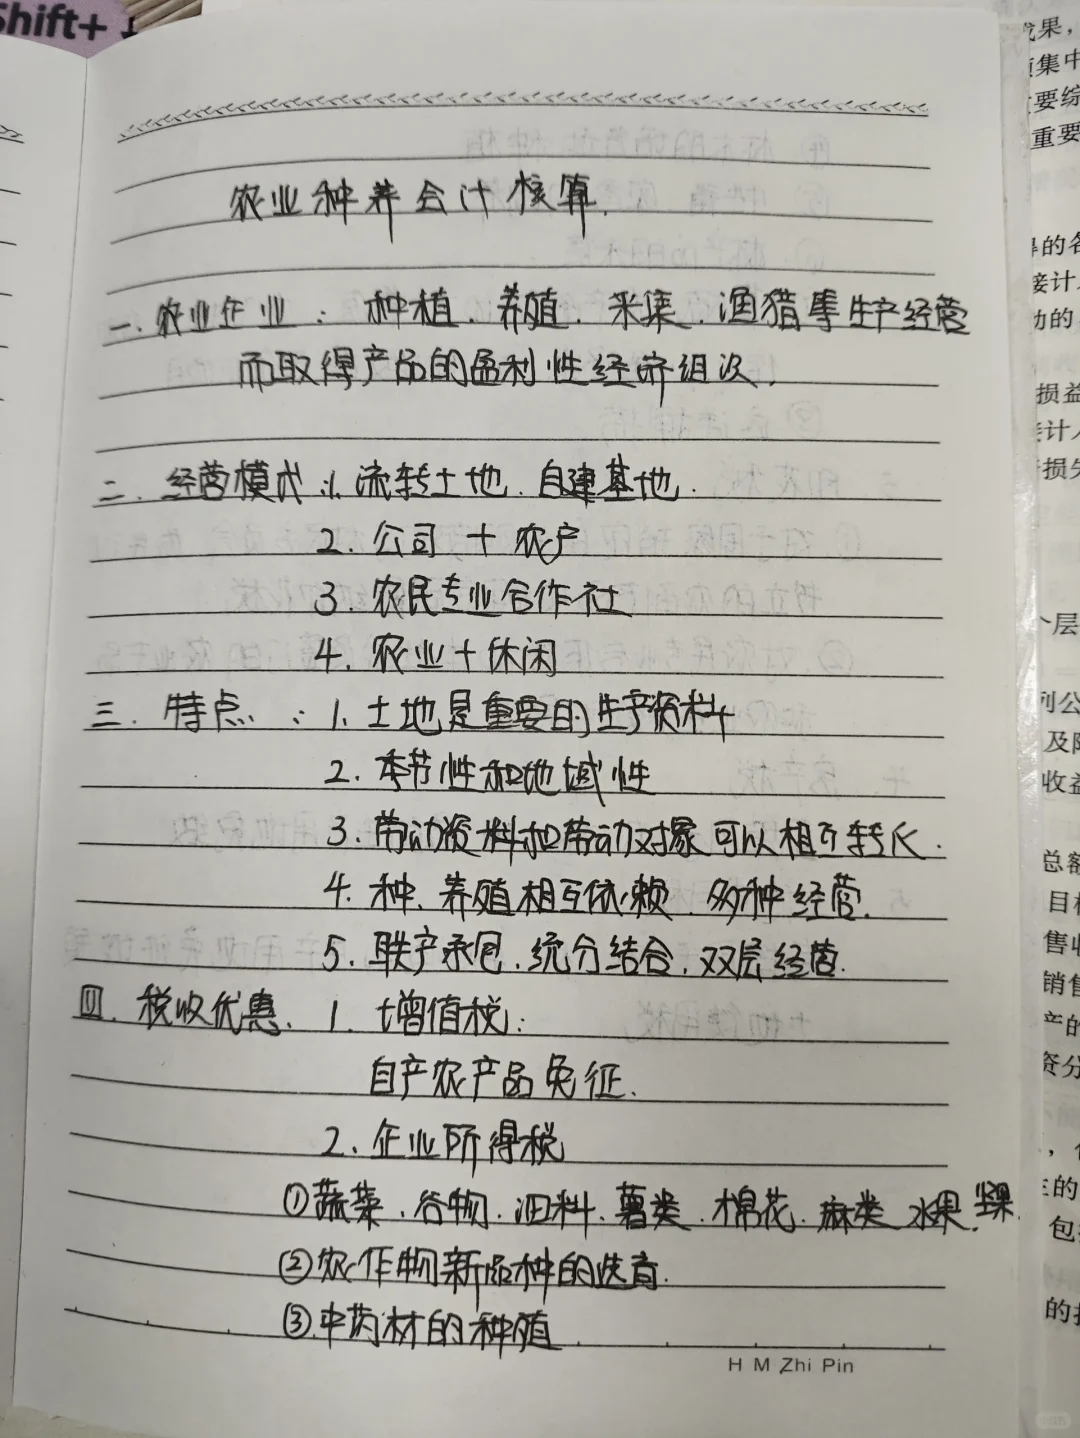 Shift+
农业种养会计核算.
一.农业企业：种植.养殖.采集.渔猎等生产经营
而取得产品的盈利性经济组织.
二.经营模式：1.流转土地.自建基地.
2.公司+农户
3.农民专业合作社
4.农业+休闲
三.特点：1.土地是重要的生产资料
2.季节性和地域性
3.劳动资料和劳动对象可以相互转化.
4.种、养殖相互依赖.多种经营.
5.联产承包.统分结合.双层经营.
四.税收优惠.1.增值税：
自产农产品免征.
2.企业所得税
①蔬菜.谷物.油料.薯类.棉花.麻类 水果.坚果.
②农作物新品种的选育.
③中药材的种植
H M Zhi Pin
成果，
集中
要综
重要
得的各
接计
动的
损益
计入
损失
个层
列公
及阶
收益
总额
目标
售收
销售
产的
资分
的
包
的